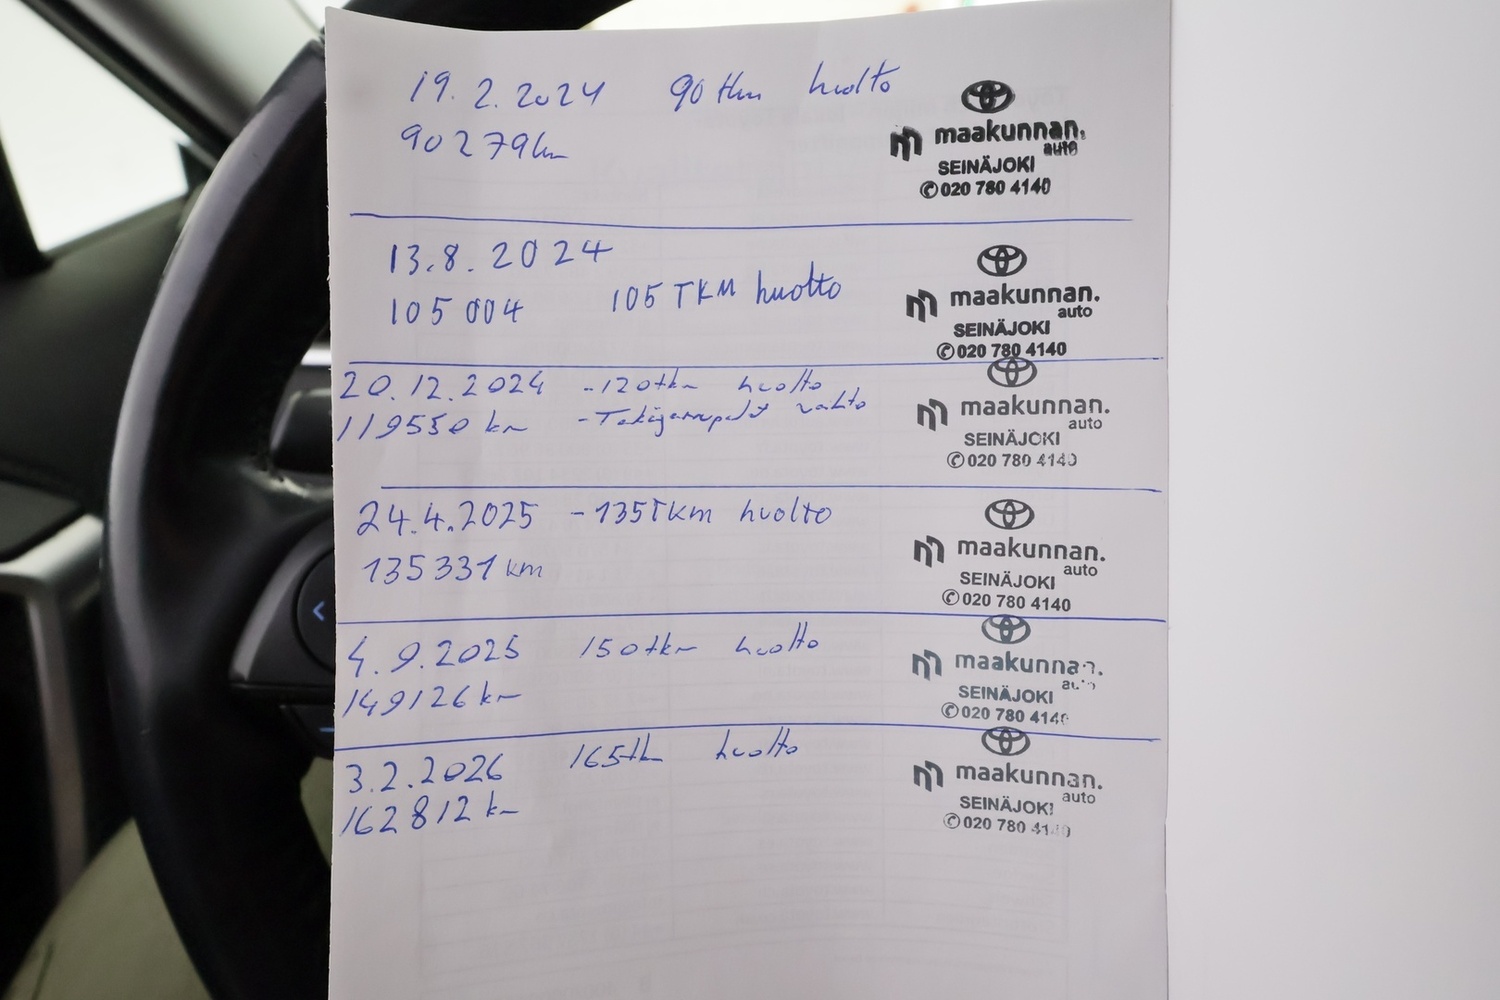 19.2.2024 90 tkm huolto
90279km
maakunnan.
auto
SEINÄJOKI
✆020 780 4140
13.8.2024
105 004 105 TKM huolto
maakunnan.
auto
SEINÄJOKI
✆020 780 4140
20.12.2024 -120tkm huolto
119550 km -Takajarrupalat vaihto
maakunnan.
auto
SEINÄJOKI
✆020 780 4140
24.4.2025 -135TKm huolto
135331 km
maakunnan.
auto
SEINÄJOKI
✆020 780 4140
4.9.2025 150tkm huolto
149126 km
maakunnan.
auto
SEINÄJOKI
✆020 780 4140
3.2.2026 165tkm huolto
162812 km
maakunnan.
auto
SEINÄJOKI
✆020 780 4140